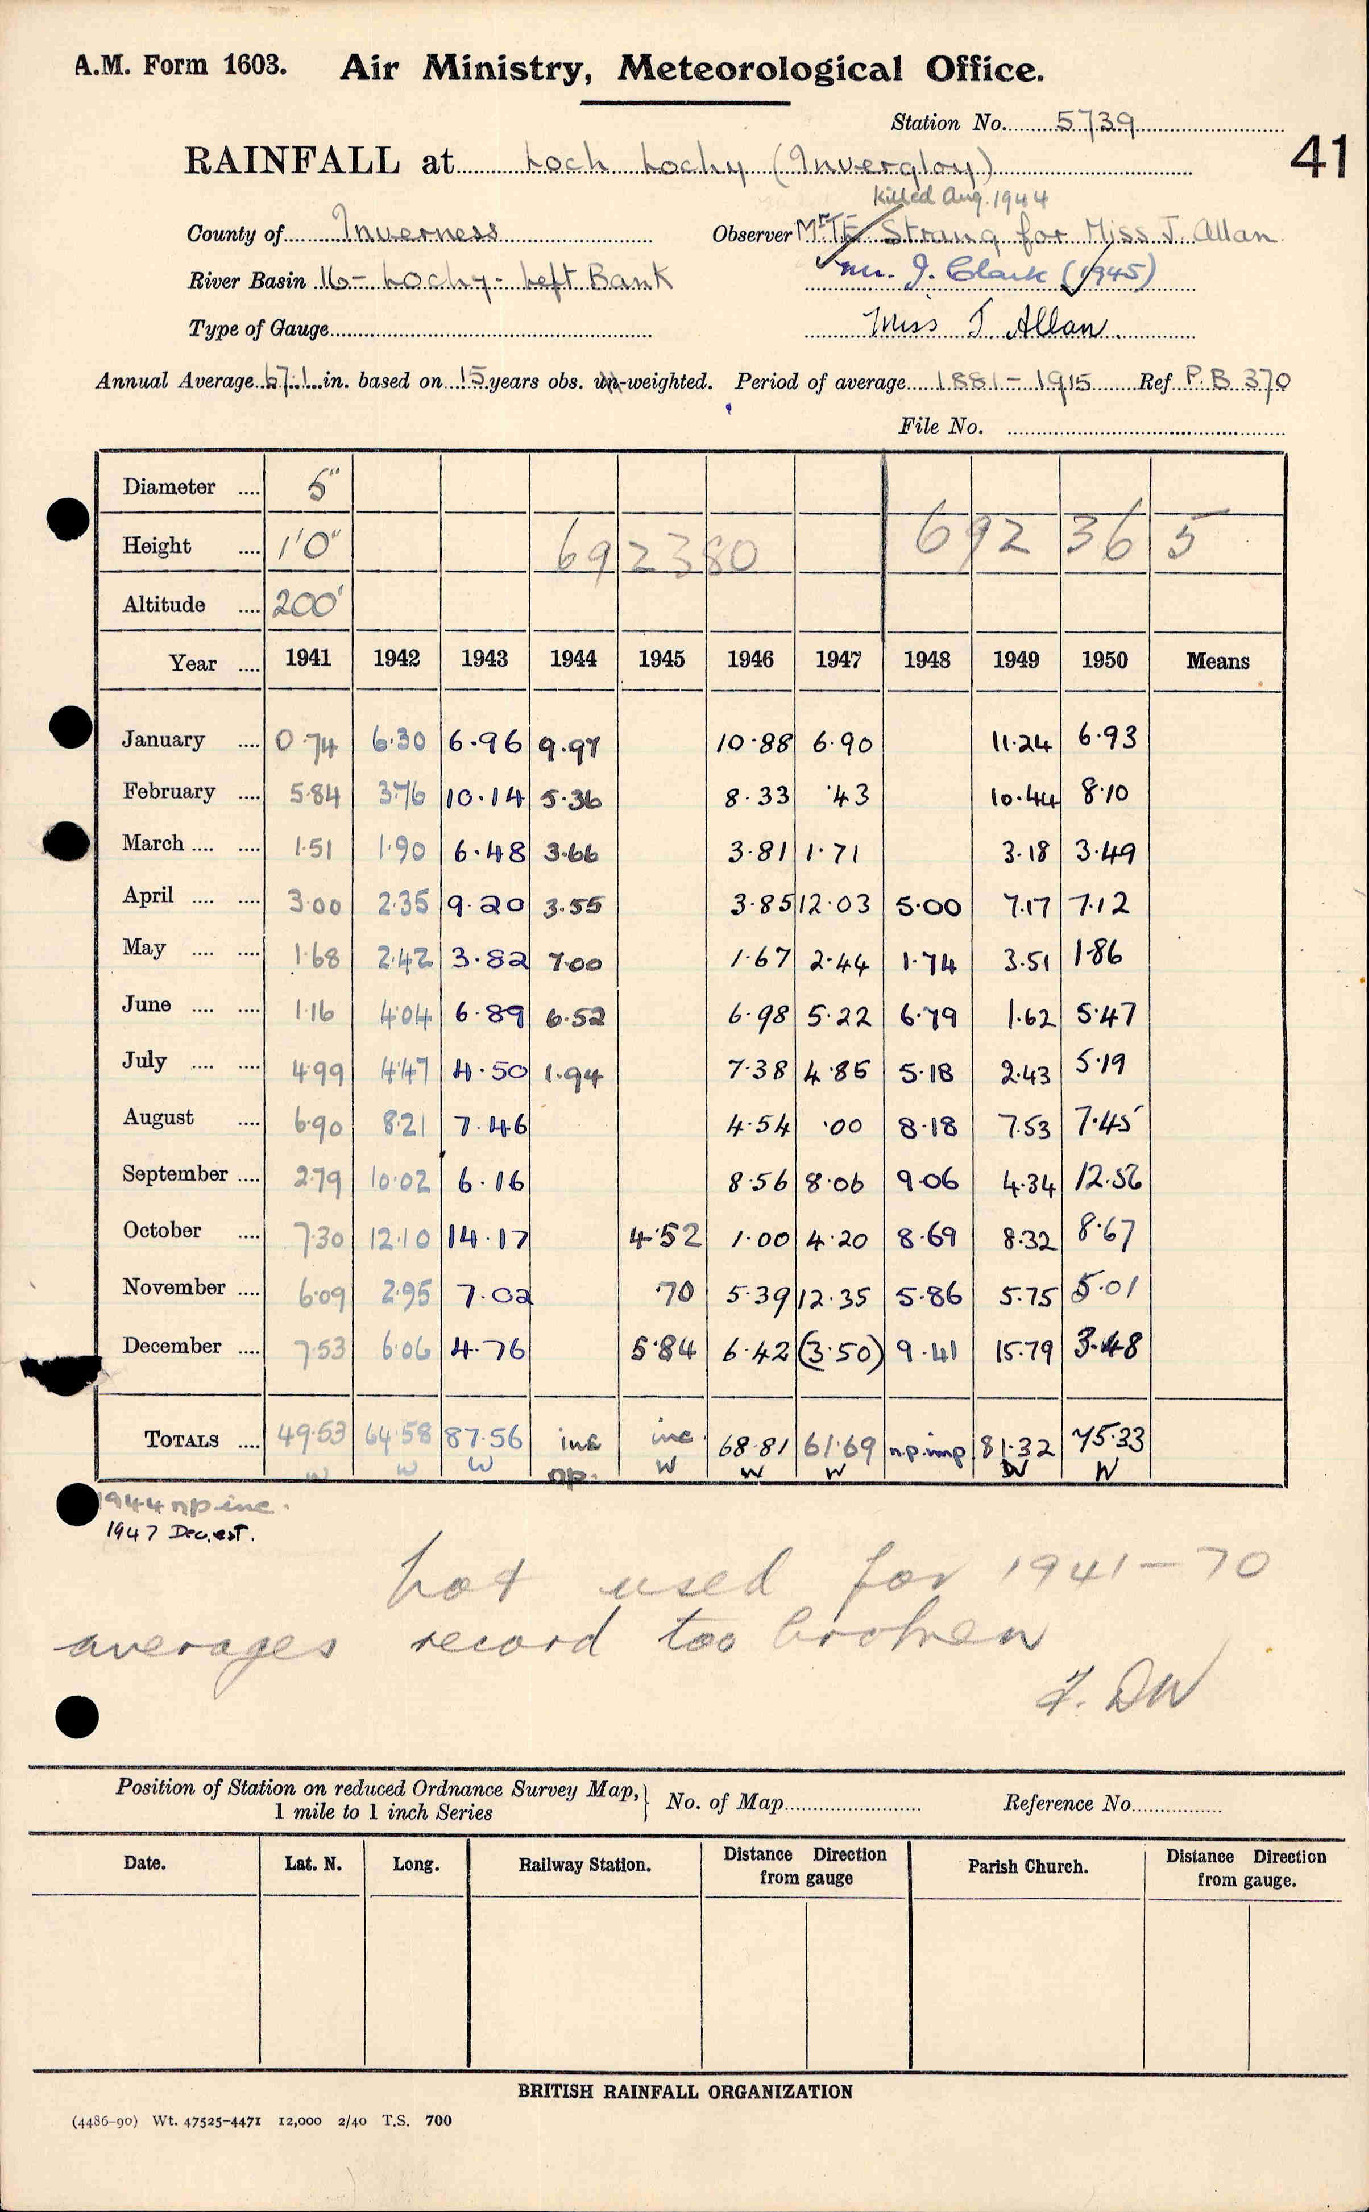 A.M. Form 1603. Air Ministry, Meteorological Office.
Station No. 5739
41
RAINFALL at Loch Lochy (Invergloy)
Killed Aug. 1944
County of Inverness Observer Mr T.E. Strang for Miss J. Allan
River Basin 16 - Lochy - Left Bank Mr. J. Clark (1945)
Type of Gauge Miss J. Allan
Annual Average 67.1 in. based on 15 years obs. un-weighted. Period of average 1881 - 1915 Ref P.B 370
File No.
Diameter 5"
Height 1'0" 692380 692365
Altitude 200'
Year 1941 1942 1943 1944 1945 1946 1947 1948 1949 1950 Means
January 0.74 6.30 6.96 9.97 10.88 6.90 11.24 6.93
February 5.84 3.76 10.14 5.36 8.33 .43 10.44 8.10
March 1.51 1.90 6.48 3.66 3.81 1.71 3.18 3.49
April 3.00 2.35 9.20 3.55 3.85 12.03 5.00 7.17 7.12
May 1.68 2.42 3.82 7.00 1.67 2.44 1.74 3.51 1.86
June 1.16 4.04 6.89 6.52 6.98 5.22 6.79 1.62 5.47
July 4.99 4.47 4.50 1.94 7.38 4.85 5.18 2.43 5.19
August 6.90 8.21 7.46 4.54 .00 8.18 7.53 7.45
September 2.79 10.02 6.16 8.56 8.06 9.06 4.34 12.56
October 7.30 12.10 14.17 4.52 1.00 4.20 8.69 8.32 8.67
November 6.09 2.95 7.02 .70 5.39 12.35 5.86 5.75 5.01
December 7.53 6.06 4.76 5.84 6.42 (3.50) 9.41 15.79 3.48
TOTALS 49.53 64.58 87.56 inc inc. 68.81 61.69 n.p. imp. 81.32 75.33
W W W np. W W W W W
1944 np inc.
1947 Dec. est.
not used for 1941-70
averages record too broken
F. DW
Position of Station on reduced Ordnance Survey Map, No. of Map Reference No.
1 mile to 1 inch Series
Date. Lat. N. Long. Railway Station. Distance Direction from gauge Parish Church. Distance Direction from gauge.
BRITISH RAINFALL ORGANIZATION
(4486-90) Wt. 47525-4471 12,000 2/40 T.S. 700